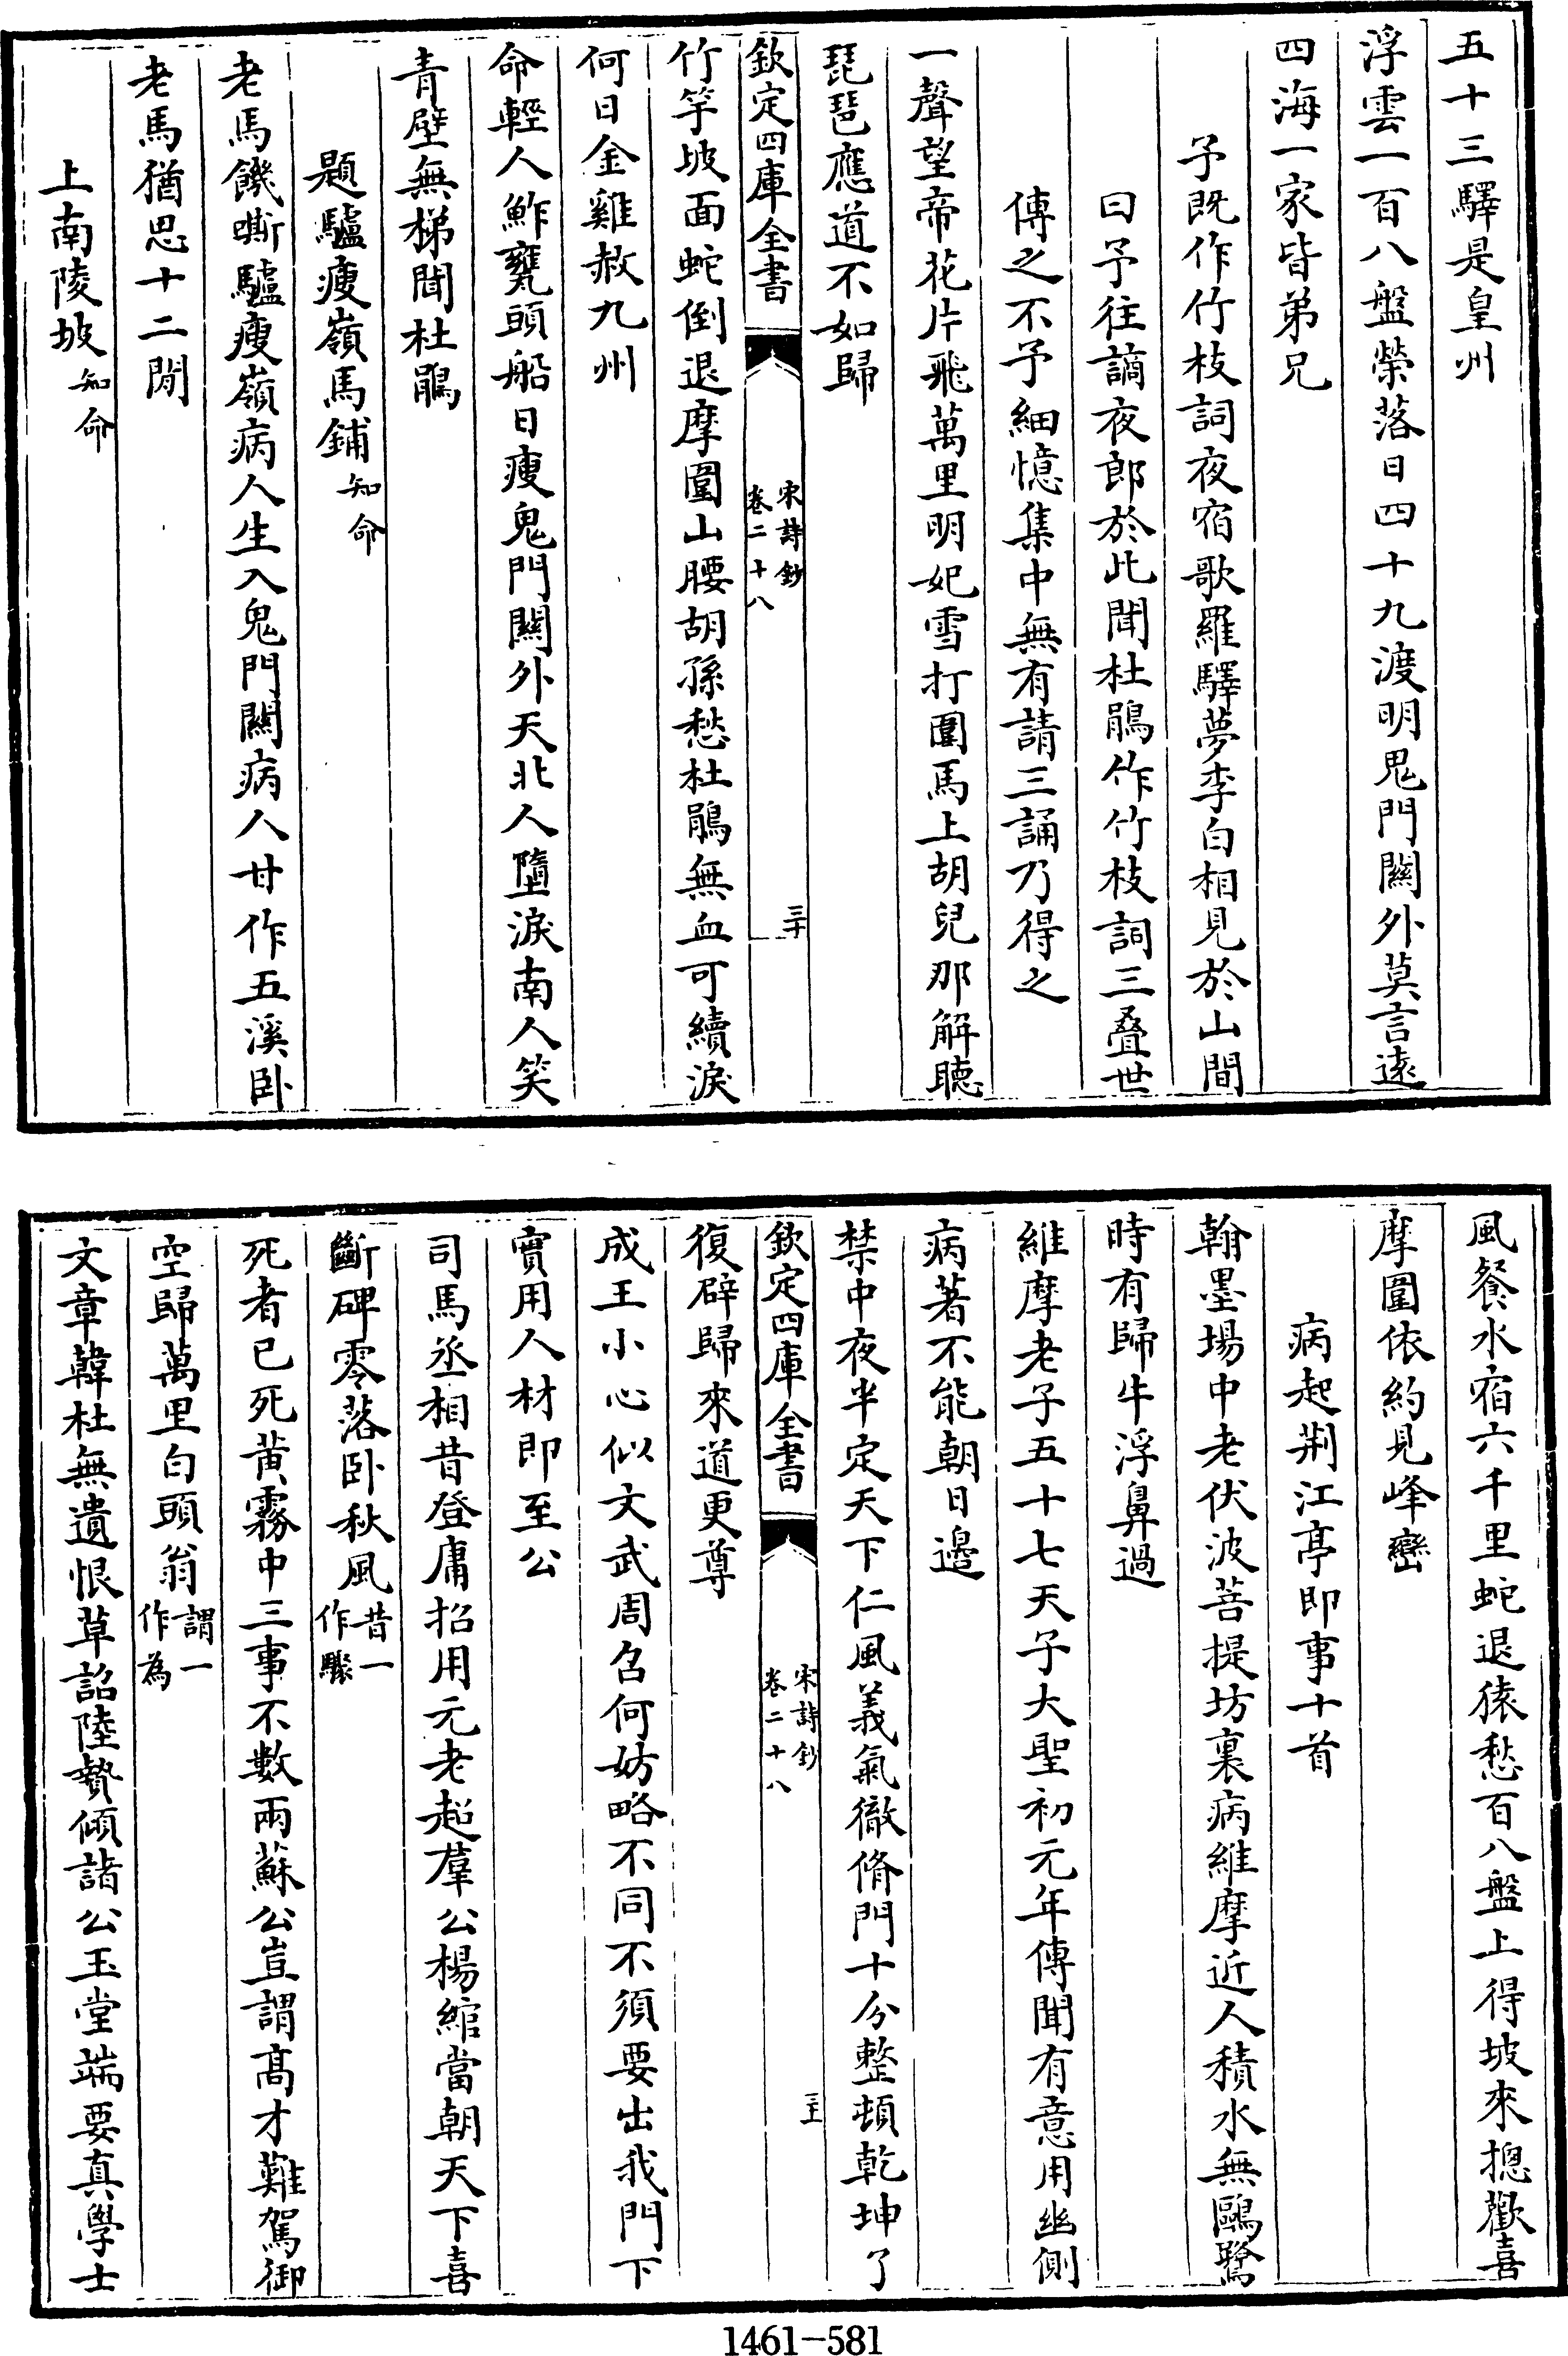 五十三驛是皇州
浮雲一百八盤縈落日四十九渡明鬼門關外莫言遠
四海一家皆弟兄
予既作竹枝詞夜宿歌羅驛夢李白相見於山間
曰予往謫夜郎於此聞杜鵑作竹枝詞三疊世
傳之不予細憶集中無有請三誦乃得之
一聲望帝花片飛萬里明妃雪打圍馬上胡兒那解聽
琵琶應道不如歸
欽定四庫全書
宋詩鈔
卷二十八
三十
竹竿坡面蛇倒退摩圍山腰胡孫愁杜鵑無血可續淚
何日金雞赦九州
命輕人鮓甕頭船日瘦鬼門關外天北人墮淚南人笑
青壁無梯聞杜鵑
題驢瘦嶺馬鋪知命
老馬饑嘶驢瘦嶺病人生入鬼門關病人甘作五溪卧
老馬猶思十二閒
上南陵坡知命
風餐水宿六千里蛇退猿愁百八盤上得坡來摠歡喜
摩圍依約見峰巒
病起荆江亭即事十首
翰墨場中老伏波菩提坊裏病維摩近人積水無鷗鷺
時有歸牛浮鼻過
維摩老子五十七天子大聖初元年傳聞有意用幽側
病著不能朝日邊
禁中夜半定天下仁風義氣徹脩門十分整頓乾坤了
欽定四庫全書
宋詩鈔
卷二十八
三十一
復辟歸來道更尊
成王小心似文武周召何妨略不同不須要出我門下
實用人材即至公
司馬丞相昔登庸招用元老超羣公楊綰當朝天下喜
斷碑零落卧秋風昔一作驟
死者已死黃霧中三事不數兩蘇公豈謂高才難駕御
空歸萬里白頭翁謂一作為
文章韓杜無遺恨草詔陸贄傾諸公玉堂端要真學士
1461-581